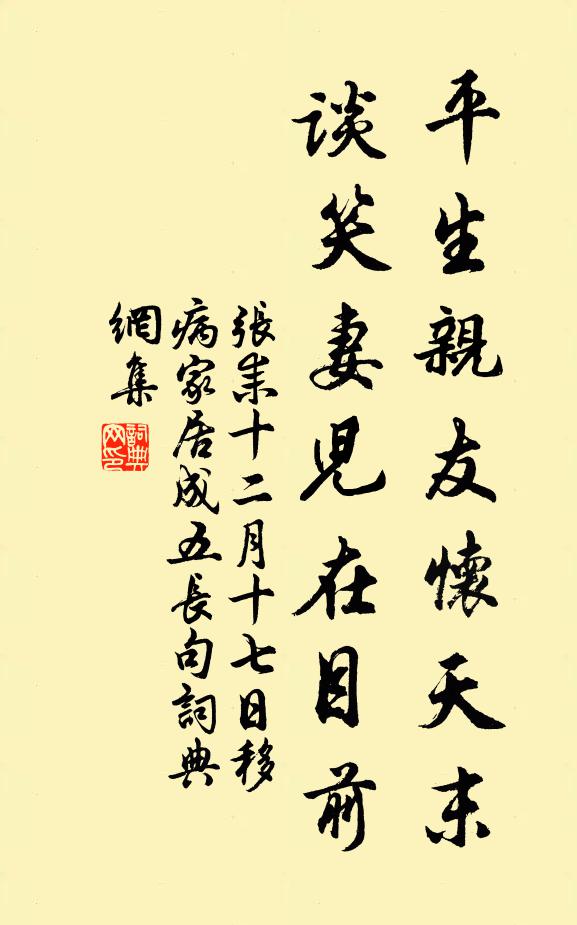 平生親友懷天末
談笑妻児在目前
張耒十二月十七日移
病家居成五長句詞典
網集
詞典
网印